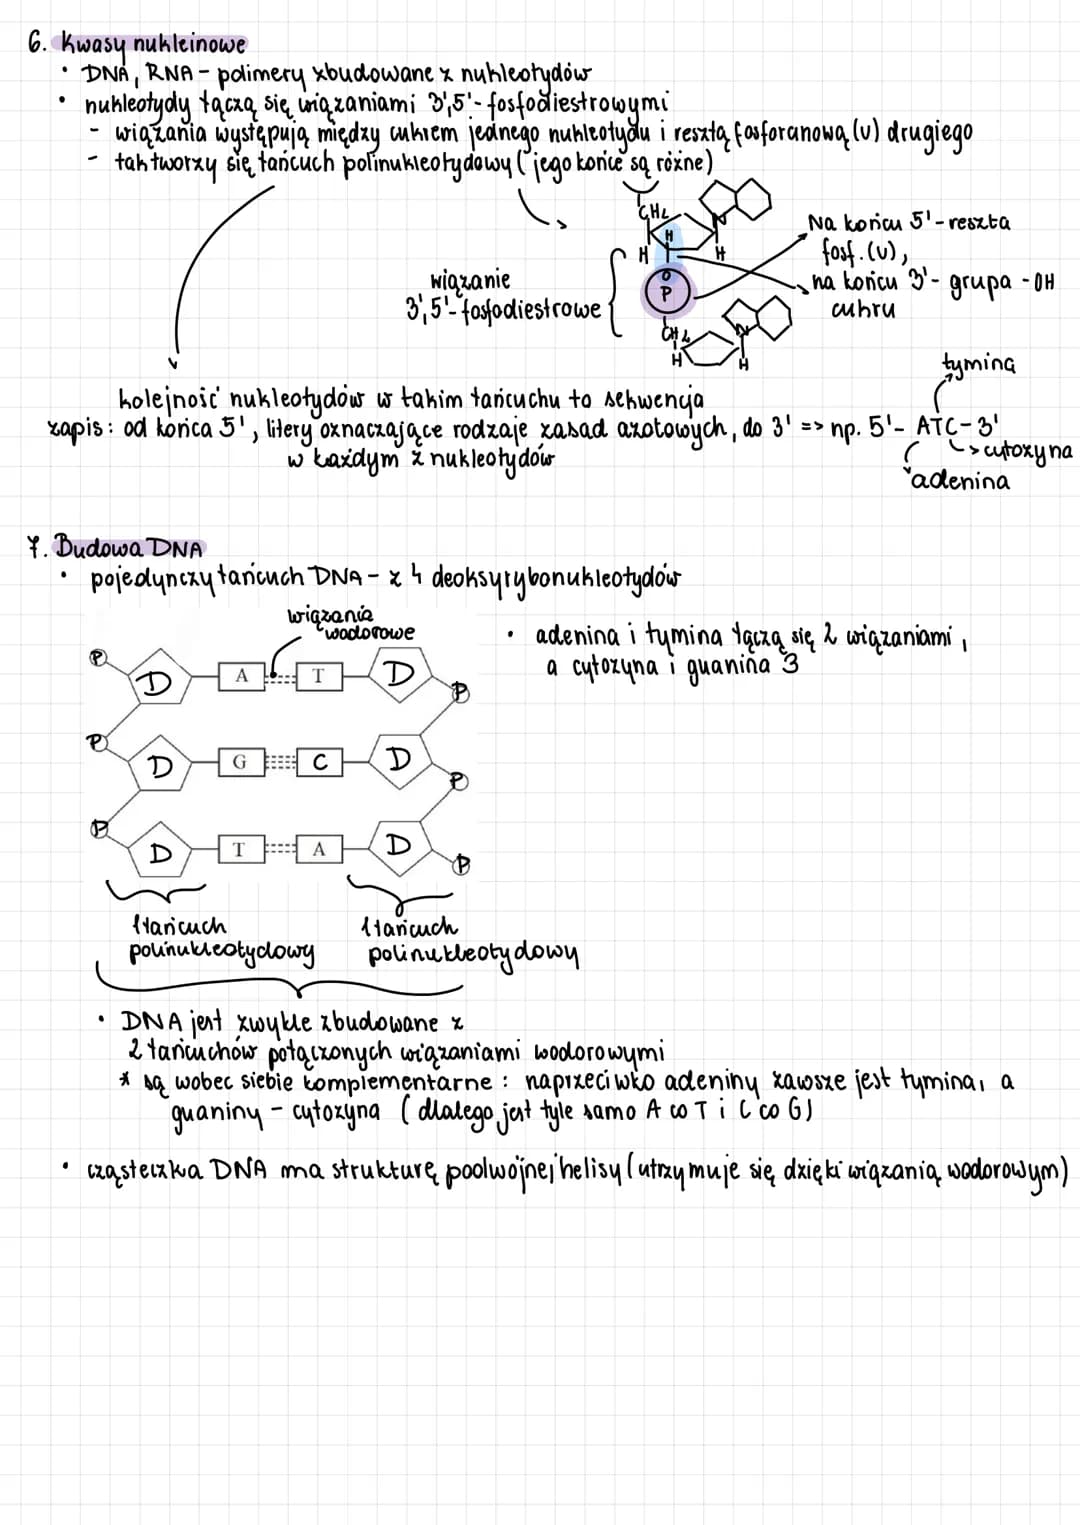 6. Kwasy nukleinowe
• DNA, RNA - polimery zbudowane z nukleotydów
• nukleotydy łączą się wiązaniami 3',5'-fosfodiestrowymi
- wiązania występują między cukrem jednego nukleotydu i resztą fosforanową (V) drugiego
- tak tworzy się łańcuch polinukleotydowy (jego końce są różne)
CH₂
H
H
H
O
P
CH₂
N
H
H
wiązanie
3',5'-fosfodiestrowe
Na końcu 5'-reszta
fosf. (V),
na końcu 3'- grupa -OH
cukru
kolejność nukleotydów w takim łańcuchu to sekwencja
tymina
zapis: od końca 5', litery oznaczające rodzaje zasad azotowych, do 3' => np. 5'- ATC-3'
w każdym z nukleotydów
cytozyna
adenina
7. Budowa DNA
• pojedynczy łańcuch DNA - z 4 deoksyrybonukleotydów
wiązania
wodorowe
• adenina i tymina łączą się 2 wiązaniami,
a cytozyna i guanina 3
P D A T D P
P D G C D P
P D T A D P
1 łańcuch
polinukleotydowy
1 łańcuch
polinukleotydowy
• DNA jest zwykle zbudowane z
2 łańcuchów połączonych wiązaniami wodorowymi
* są wobec siebie komplementarne: naprzeciwko adeniny zawsze jest tymina, a
guaniny - cytozyna (dlatego jest tyle samo A co T i C co G)
• cząsteczka DNA ma strukturę podwójnej helisy (utrzymuje się dzięki wiązanią wodorowym)